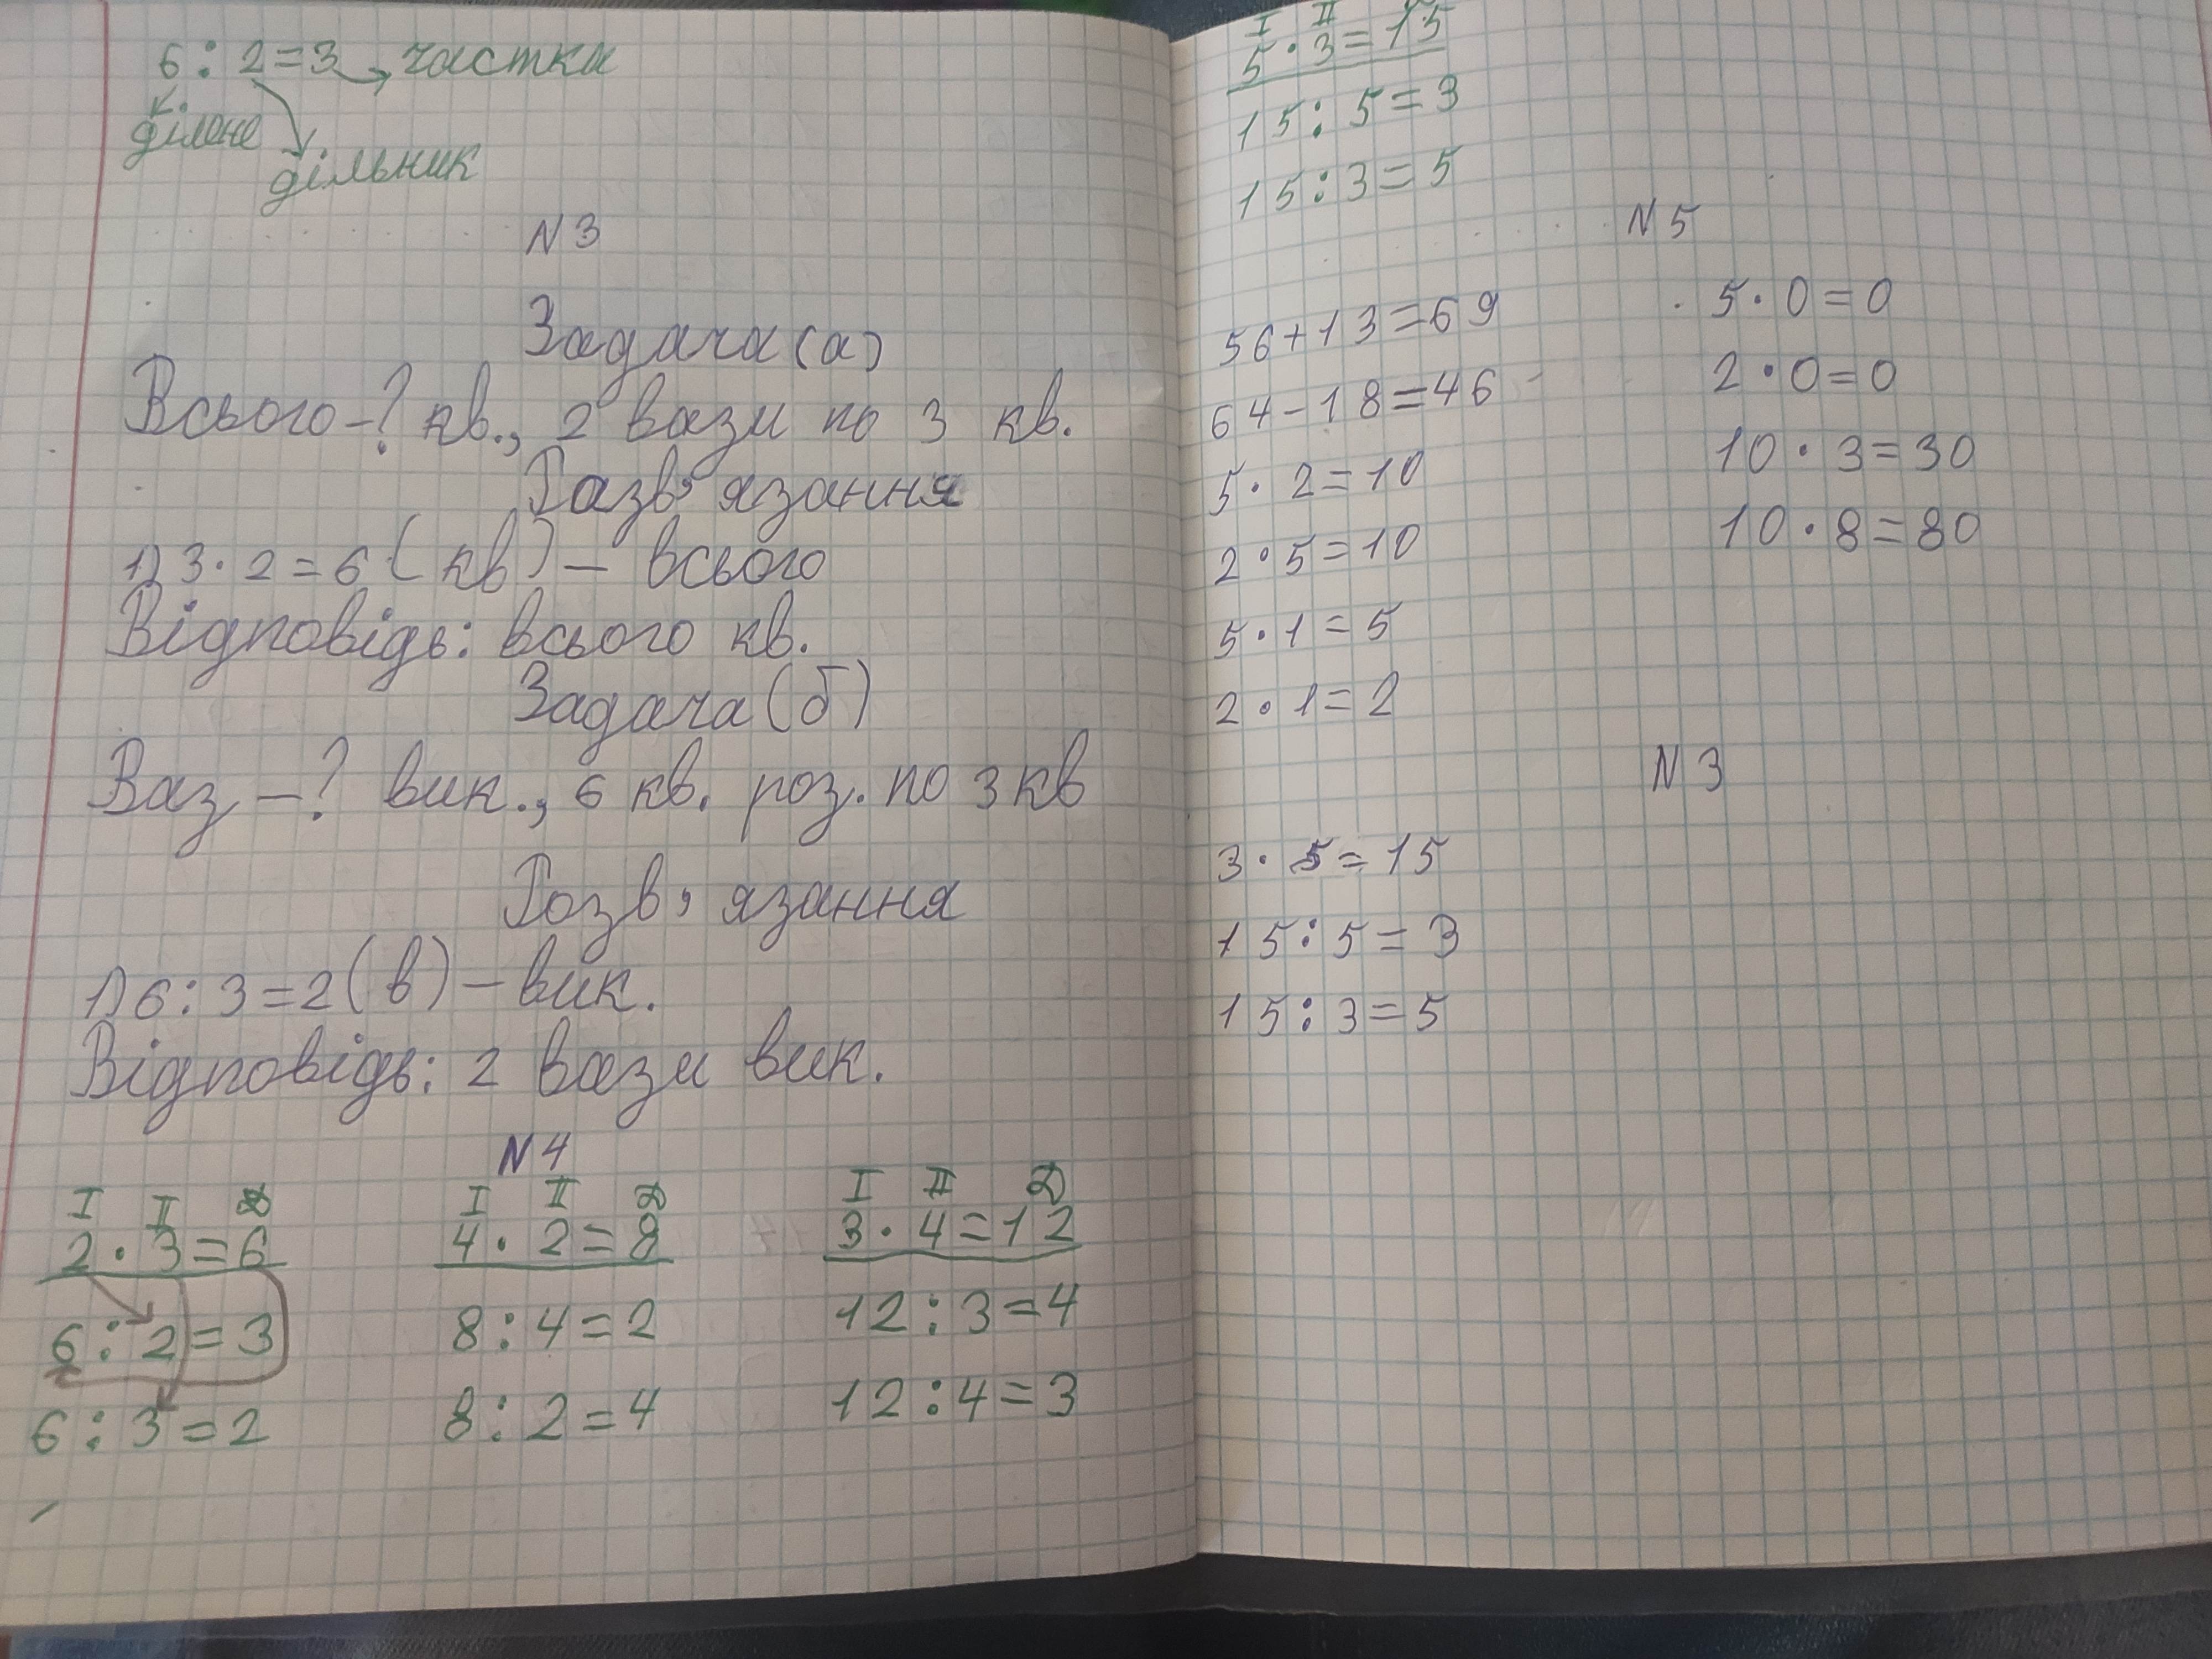 6 : 2 = 3 → частка
ділене
дільник
N 3
Задача (а)
Всього - ? кв., 2 вази по 3 кв.
Розв, язання
1) 3 · 2 = 6 (кв) - всього
Відповідь: всього кв.
Задача (б)
Ваз - ? вик., 6 кв. роз. по 3 кв
Розв, язання
1) 6 : 3 = 2 (в) - вик.
Відповідь: 2 вази вик.
N 4
I II Д
2 · 3 = 6
6 : 2 = 3
6 : 3 = 2
I II Д
4 · 2 = 8
8 : 4 = 2
8 : 2 = 4
I II Д
3 · 4 = 12
12 : 3 = 4
12 : 4 = 3
I II
5 · 3 = 15
15 : 5 = 3
15 : 3 = 5
N 5
56 + 13 = 69
64 - 18 = 46
5 · 2 = 10
2 · 5 = 10
5 · 1 = 5
2 · 1 = 2
5 · 0 = 0
2 · 0 = 0
10 · 3 = 30
10 · 8 = 80
N 3
3 · 5 = 15
15 : 5 = 3
15 : 3 = 5